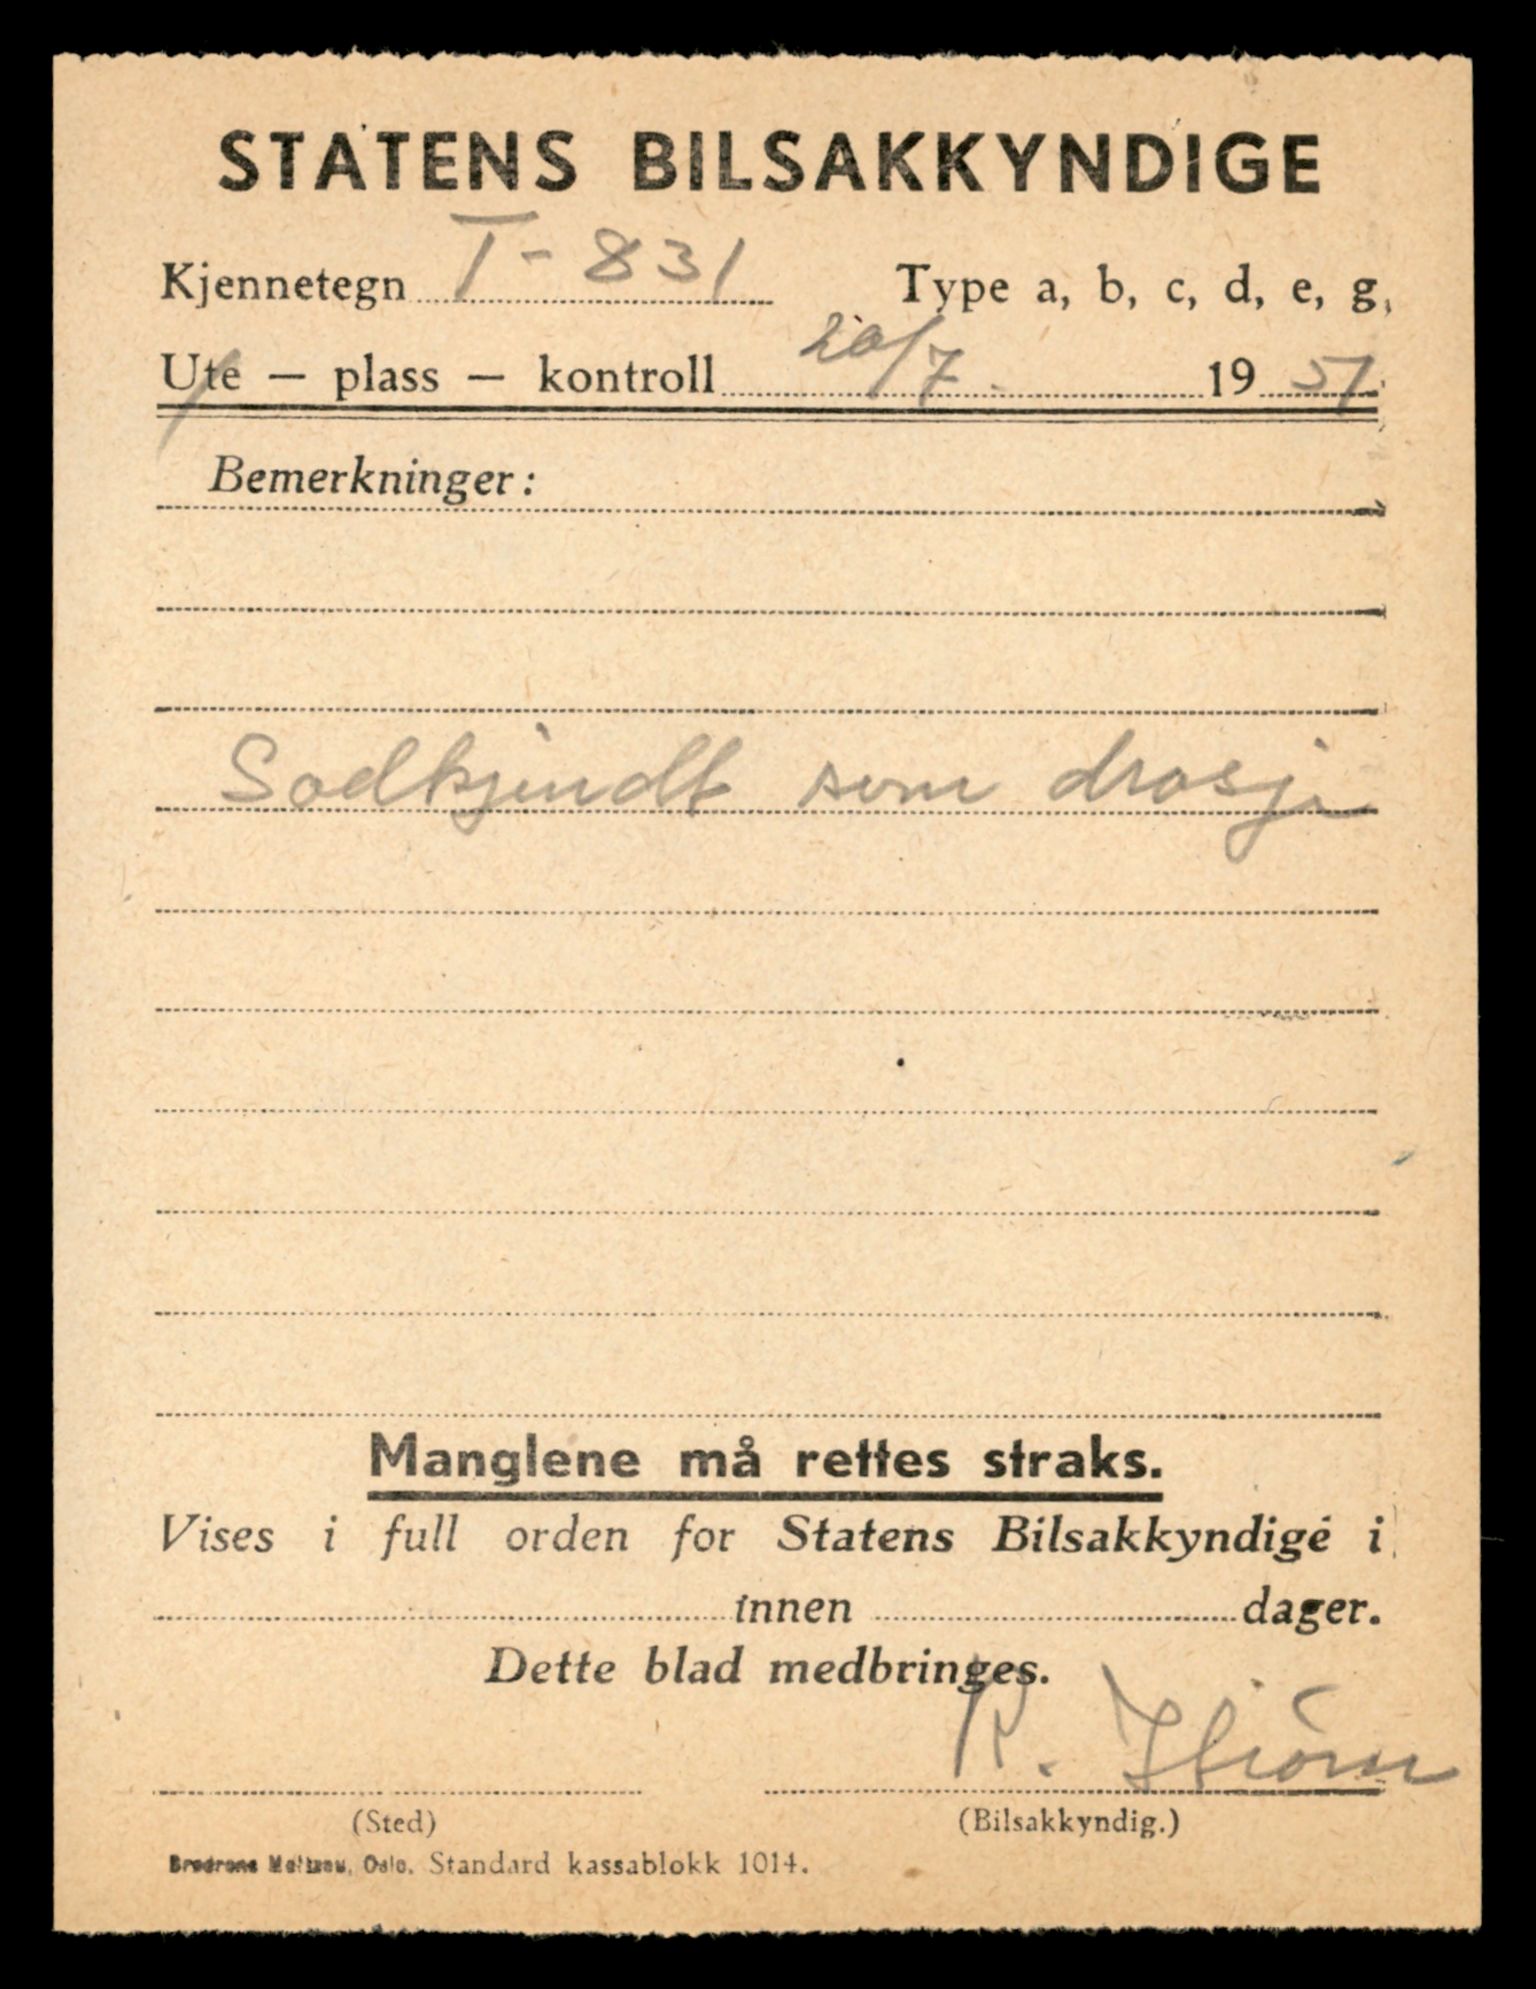 STATENS BILSAKKYNDIGE
Kjennetegn T-831 Type a, b, c, d, e, g,
Ute — plass — kontroll 20/7. 1951
Bemerkninger:
Godkjendt som drosje
Manglene må rettes straks.
Vises i full orden for Statens Bilsakkyndige i
innen dager.
Dette blad medbringes.
(Sted) (Bilsakkyndig.)
Brødrene Oslo. Standard kassablokk 1014.